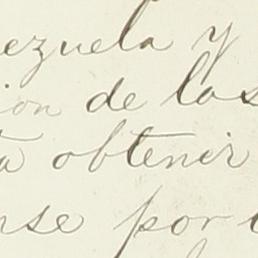 ezuela y
ion de los
a obtener
rse por